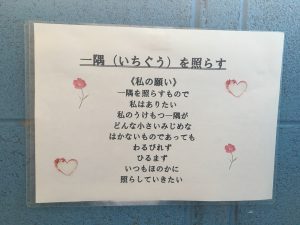 一隅（いちぐう）を照らす
《私の願い》
一隅を照らすもので
私はありたい
私のうけもつ一隅が
どんな小さいみじめな
はかないものであっても
わるびれず
ひるまず
いつもほのかに
照らしていきたい